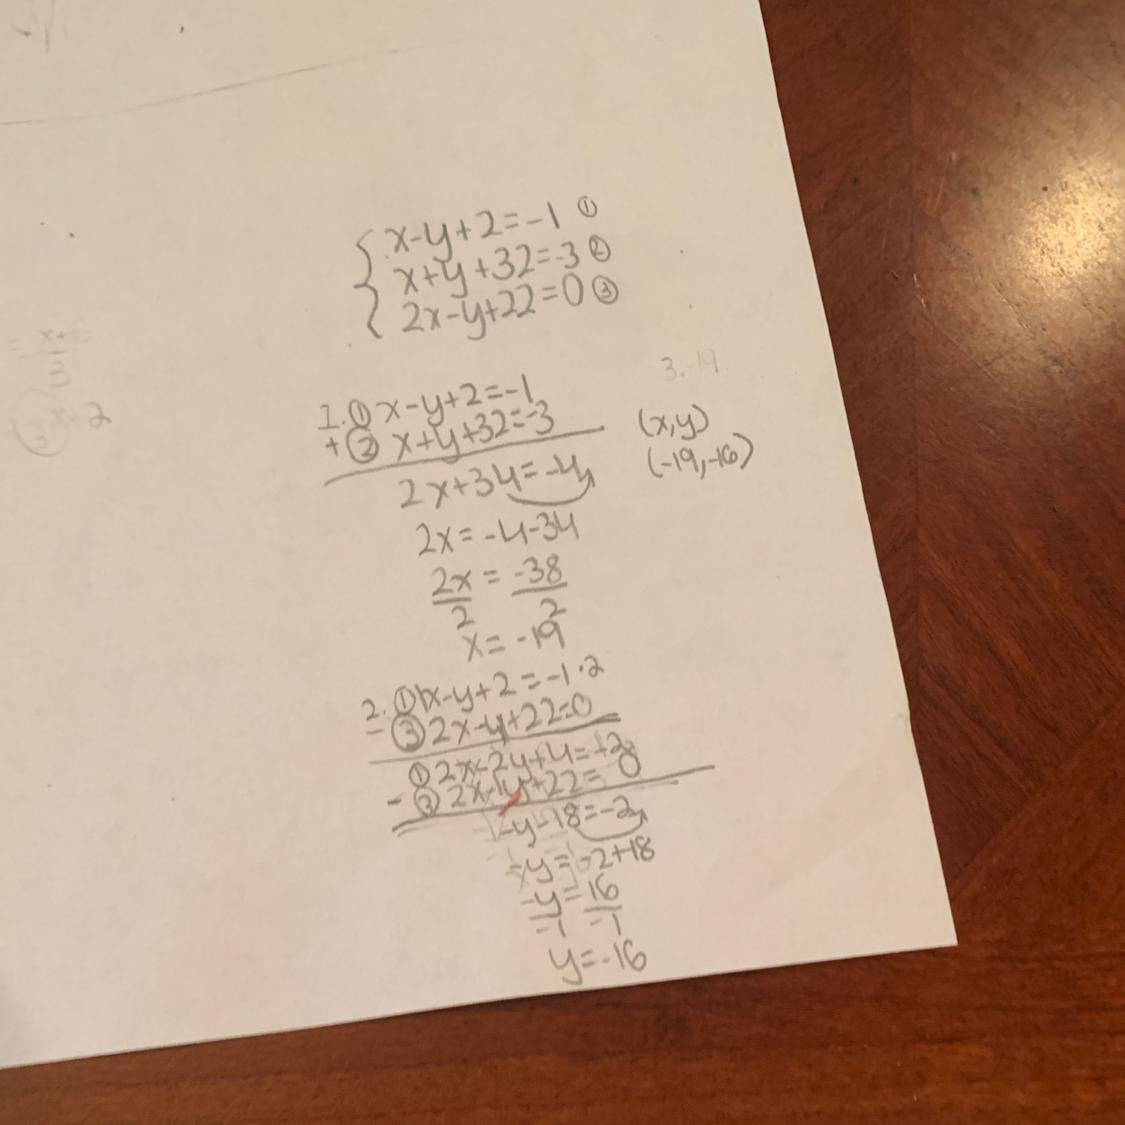 x-y+2=-1 ①
x+y+32=-3 ②
2x-y+22=0 ③
1. ① x-y+2=-1
+ ② x+y+32=-3
2x+34=-4
2x=-4-34
2x = -38
2 2
x=-19
(x,y)
(-19,-16)
2. ① x-y+2=-1·2
- ③ 2x-y+22=0
① 2x-2y+4=-2
- ③ 2x-1y+22=0
-y-18=-2
-y=-2+18
-y=16
-1 -1
y=-16